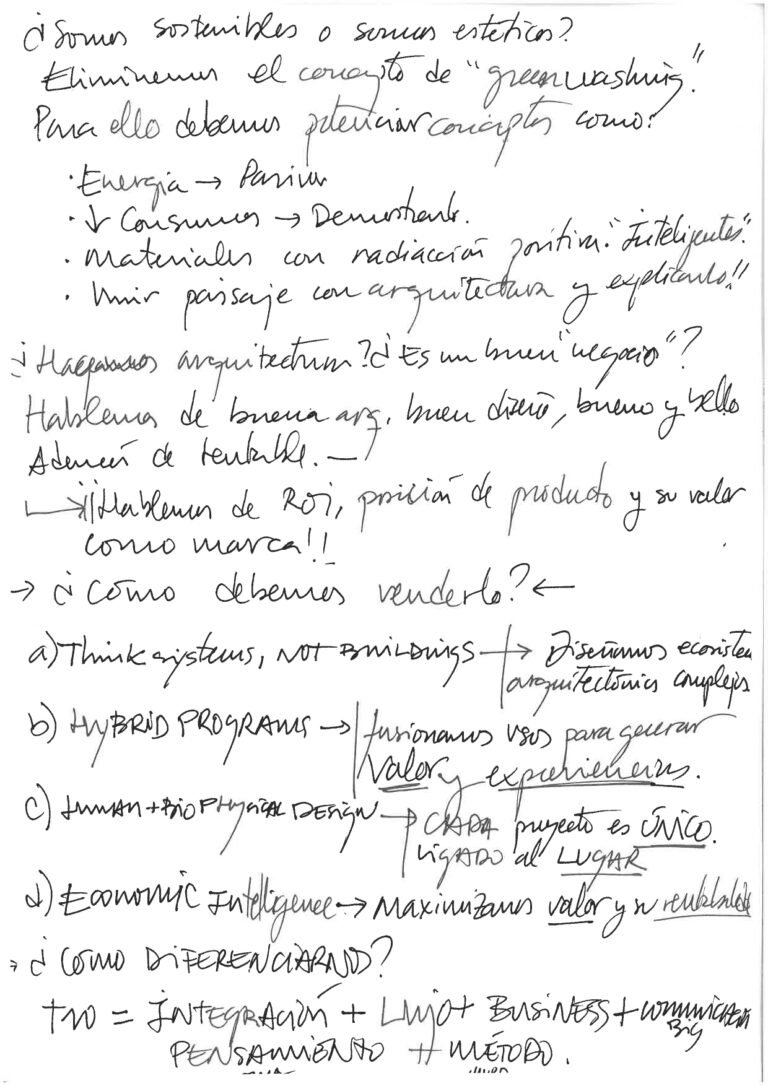 ¿Somos sostenibles o somos estéticos?
Eliminemos el concepto de "greenwashing".
Para ello debemos potenciar conceptos como:
· Energía → Pasiva
· ↓ Consumos → Demostrarlo.
· Materiales con radiación positiva. "Inteligentes".
· Unir paisaje con arquitectura y explicarlo!!
¿Hagamos arquitectura? ¿Es un buen "negocio"?
Hablemos de buena arq. buen diseño, bueno y bello
Además de rentable. —
↳ ¡¡Hablemos de ROI, posición de producto y su valor
como marca!!
→ ¿Cómo debemos venderlo? ←
a) Think systems, NOT BUILDINGS → Diseñamos ecosistem
arquitectónicos complejos
b) HYBRID PROGRAMS → fusionamos usos para generar
valor y experiencias.
c) HUMAN + BIOPHYSICAL DESIGN → CADA proyecto es ÚNICO.
LIGADO al LUGAR
d) Economic Intelligence → Maximizamos valor y su rentabilidad
→ ¿CÓMO DIFERENCIARNOS?
= INTEGRACIÓN + Lujo + BUSINESS + comunicación
Big
PENSAMIENTO + MÉTODO.